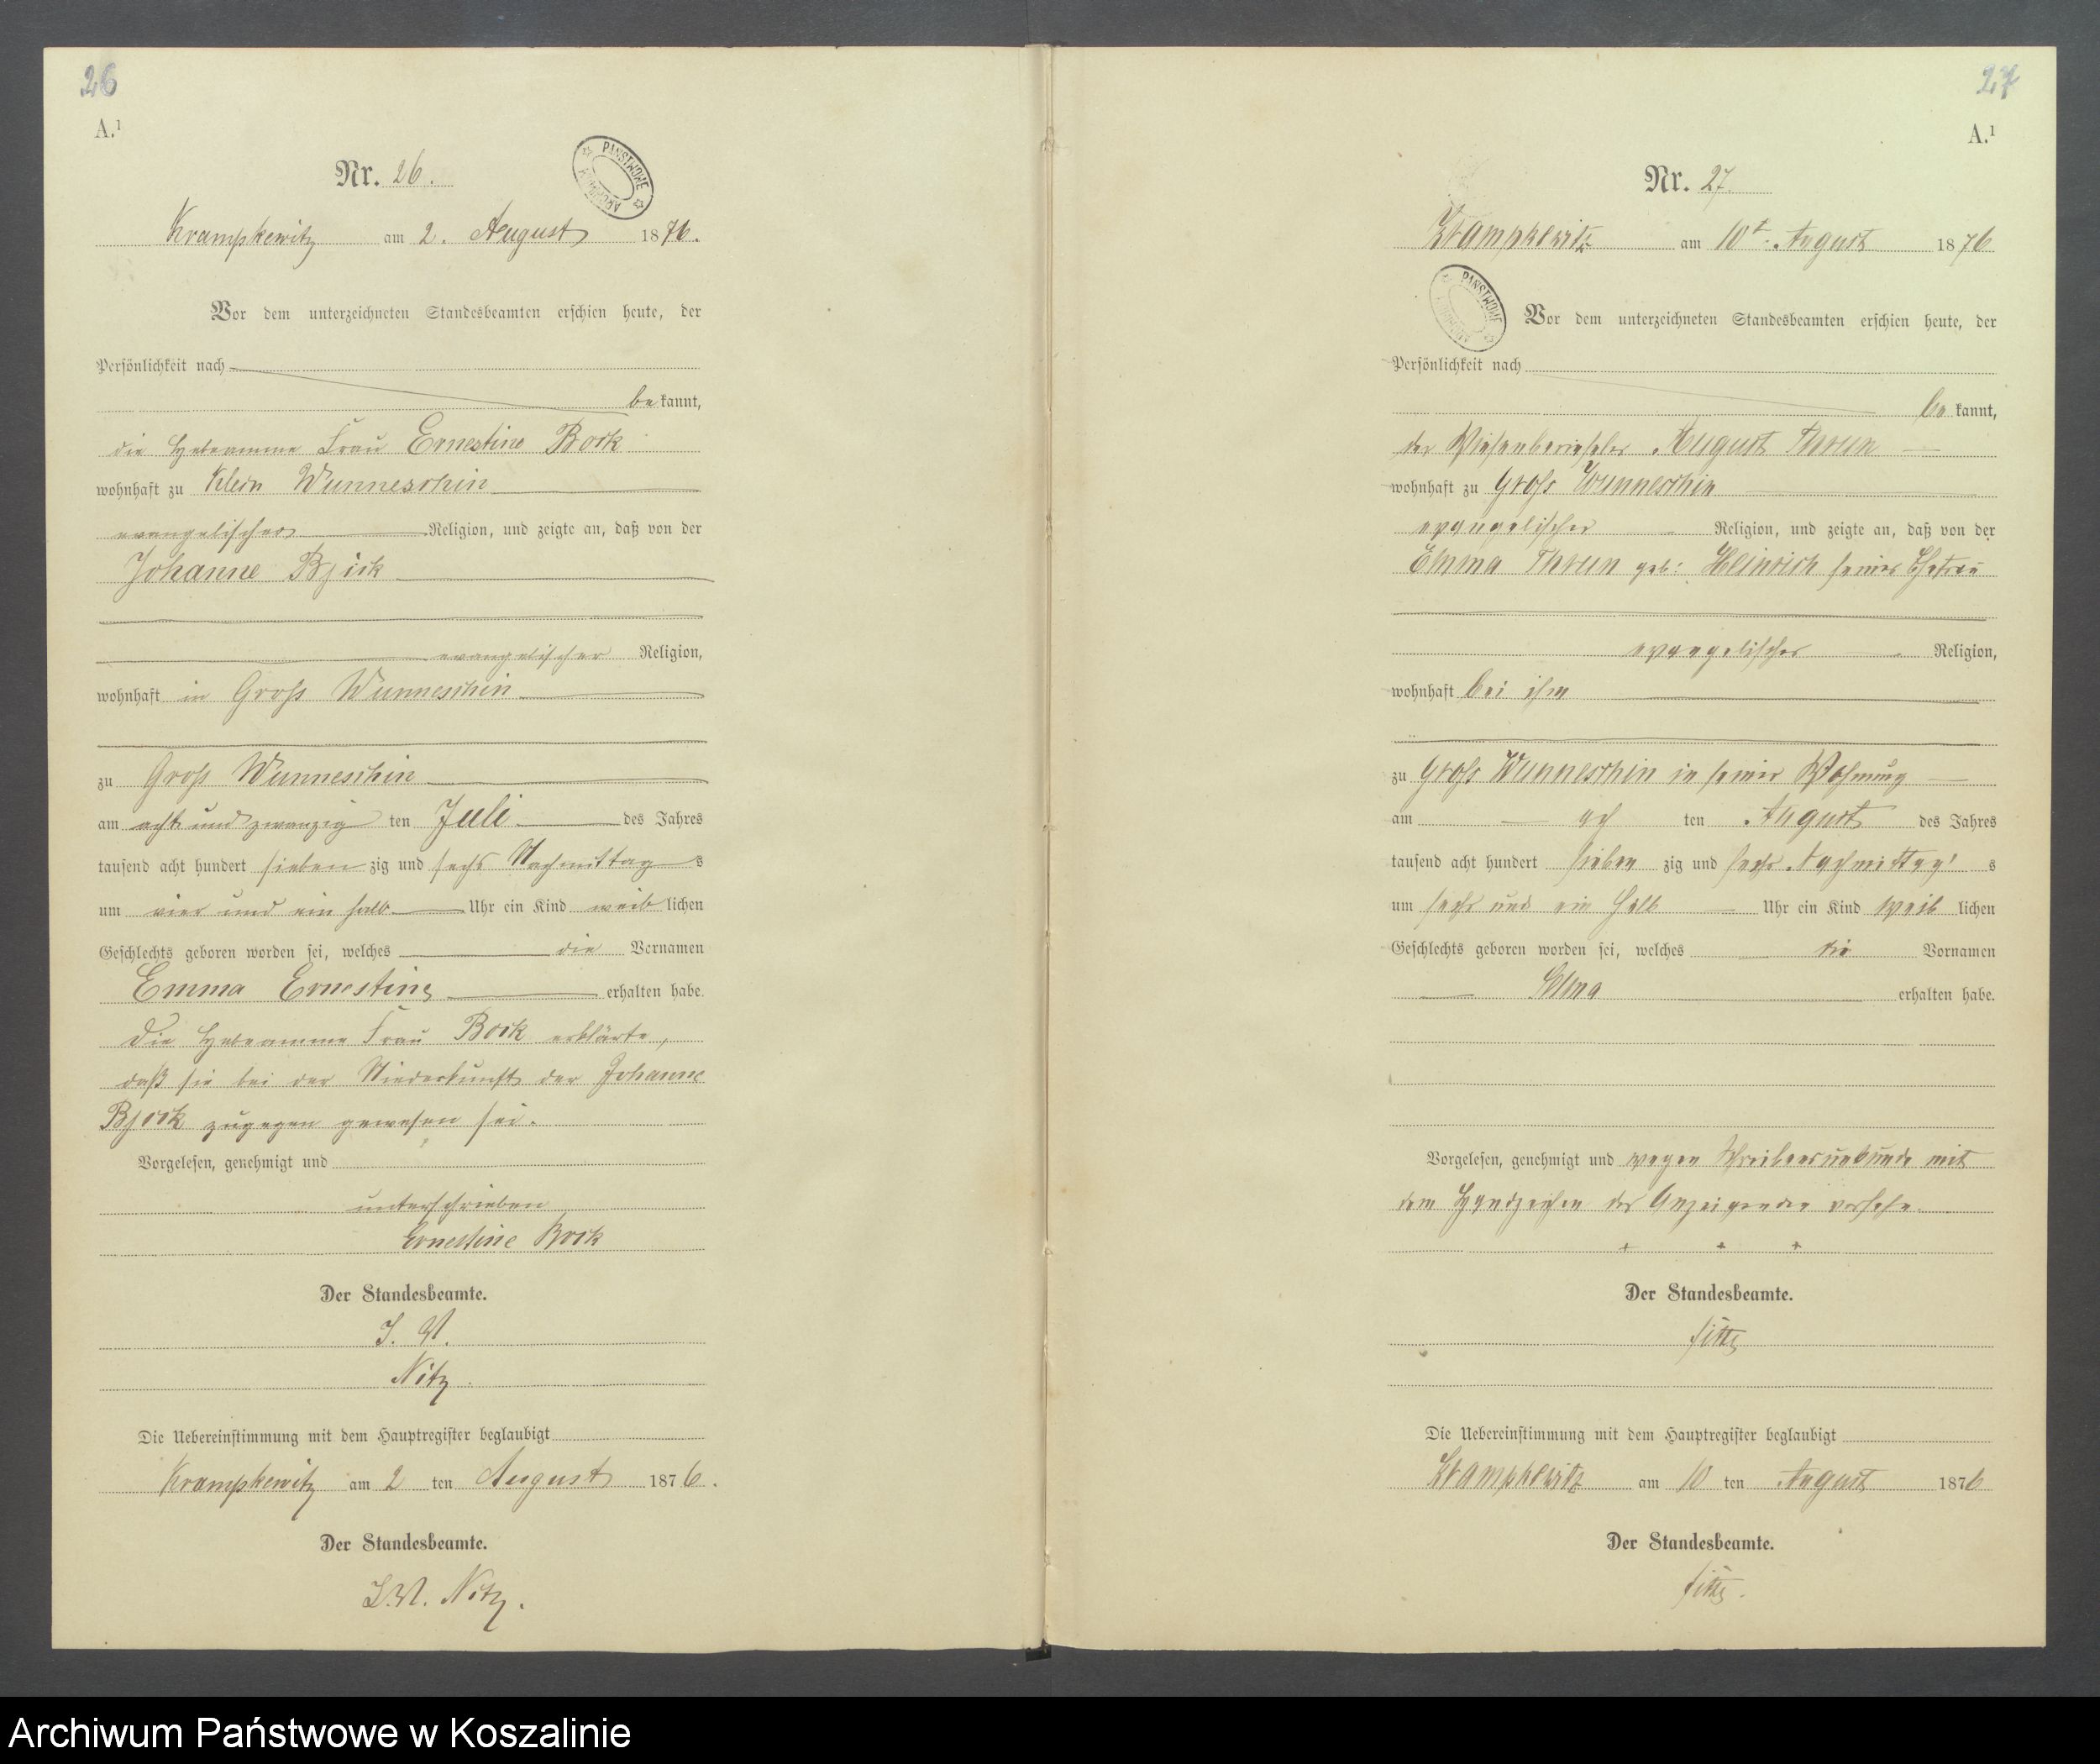 26
A.¹
Nr. 26.
PAŃSTWOWE
ARCHIWUM
Krampkewitz am 2. August 1876.
Vor dem unterzeichneten Standesbeamten erschien heute, der
Persönlichkeit nach
be kannt,
die Hebeamme Frau Ernestine Bock
wohnhaft zu Klein Wunneschin
evangelischer Religion, und zeigte an, daß von der
Johanne
evangelischer Religion,
wohnhaft in Groß Wunneschin
zu Groß Wunneschin
am acht und zwanzig ten Juli des Jahres
tausend acht hundert sieben zig und sechs Nachmittag s
um vier und ein halb Uhr ein Kind weib lichen
Geschlechts geboren worden sei, welches die Vornamen
Emma Ernestine erhalten habe.
Die Hebeamme Frau Bock erklärte,
daß sie bei der Niederkunft der Johanne
zugegen gewesen sei.
Vorgelesen, genehmigt und
unterschrieben
Ernestine Bock
Der Standesbeamte.
I. V.
Nitz.
Die Uebereinstimmung mit dem Hauptregister beglaubigt
Krampkewitz am 2 ten August 1876.
Der Standesbeamte.
I. V. Nitz.
27
A.¹
Nr. 27.
Krampkewitz am 10t. August 1876
PAŃSTWOWE
ARCHIWUM
Vor dem unterzeichneten Standesbeamten erschien heute, der
Persönlichkeit nach
be kannt,
der Wiesenberiesler August Thrun
wohnhaft zu Groß Wunneschin
evangelischer Religion, und zeigte an, daß von der
Emma Thrun geb: Heinrich seiner Ehefrau
evangelischer Religion,
wohnhaft bei ihm
zu Groß Wunneschin in seiner Wohnung
am ten August des Jahres
tausend acht hundert sieben zig und sechs Nachmittag s
um sechs und ein halb Uhr ein Kind weib lichen
Geschlechts geboren worden sei, welches die Vornamen
erhalten habe.
Vorgelesen, genehmigt und wegen Schreibensunkunde mit
dem Handzeichen des Anzeigenden versehn.
+ + +
Der Standesbeamte.
Die Uebereinstimmung mit dem Hauptregister beglaubigt
Krampkewitz am 10 ten August 1876
Der Standesbeamte.
Archiwum Państwowe w Koszalinie